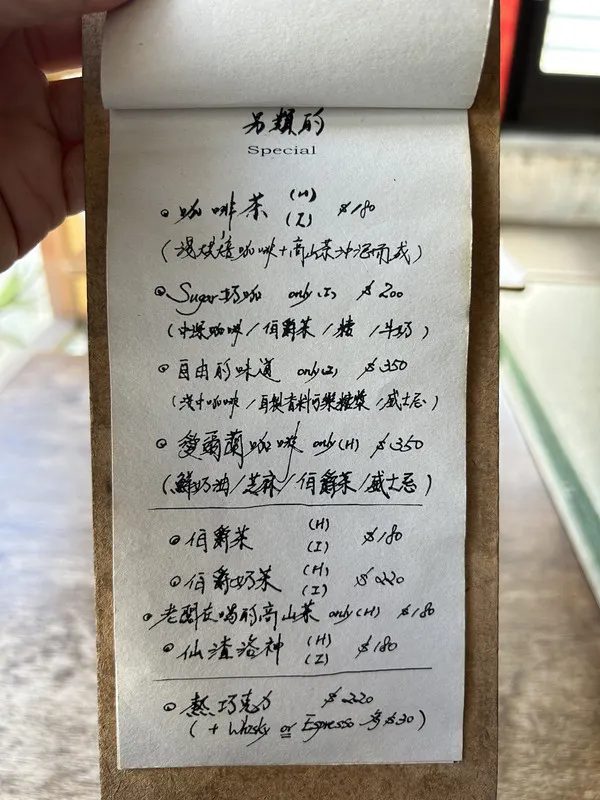 另類的
Special
咖啡茶 (H) (I) $180
(淺烘焙咖啡+高山茶沖泡而成)
Sugar奶咖 only(I) $200
(中深咖啡/伯爵茶/糖/牛奶)
自由的味道 only(I) $350
(淺中咖啡/自製香料可樂糖漿/威士忌)
愛爾蘭咖啡 only(H) $350
(鮮奶油/芝麻/伯爵茶/威士忌)
伯爵茶 (H) (I) $180
伯爵奶茶 (H) (I) $220
老闆在喝的高山茶 only(H) $180
仙渣洛神 (H) (I) $180
熱巧克力 $220
(+ Whisky or Espresso 多$30)